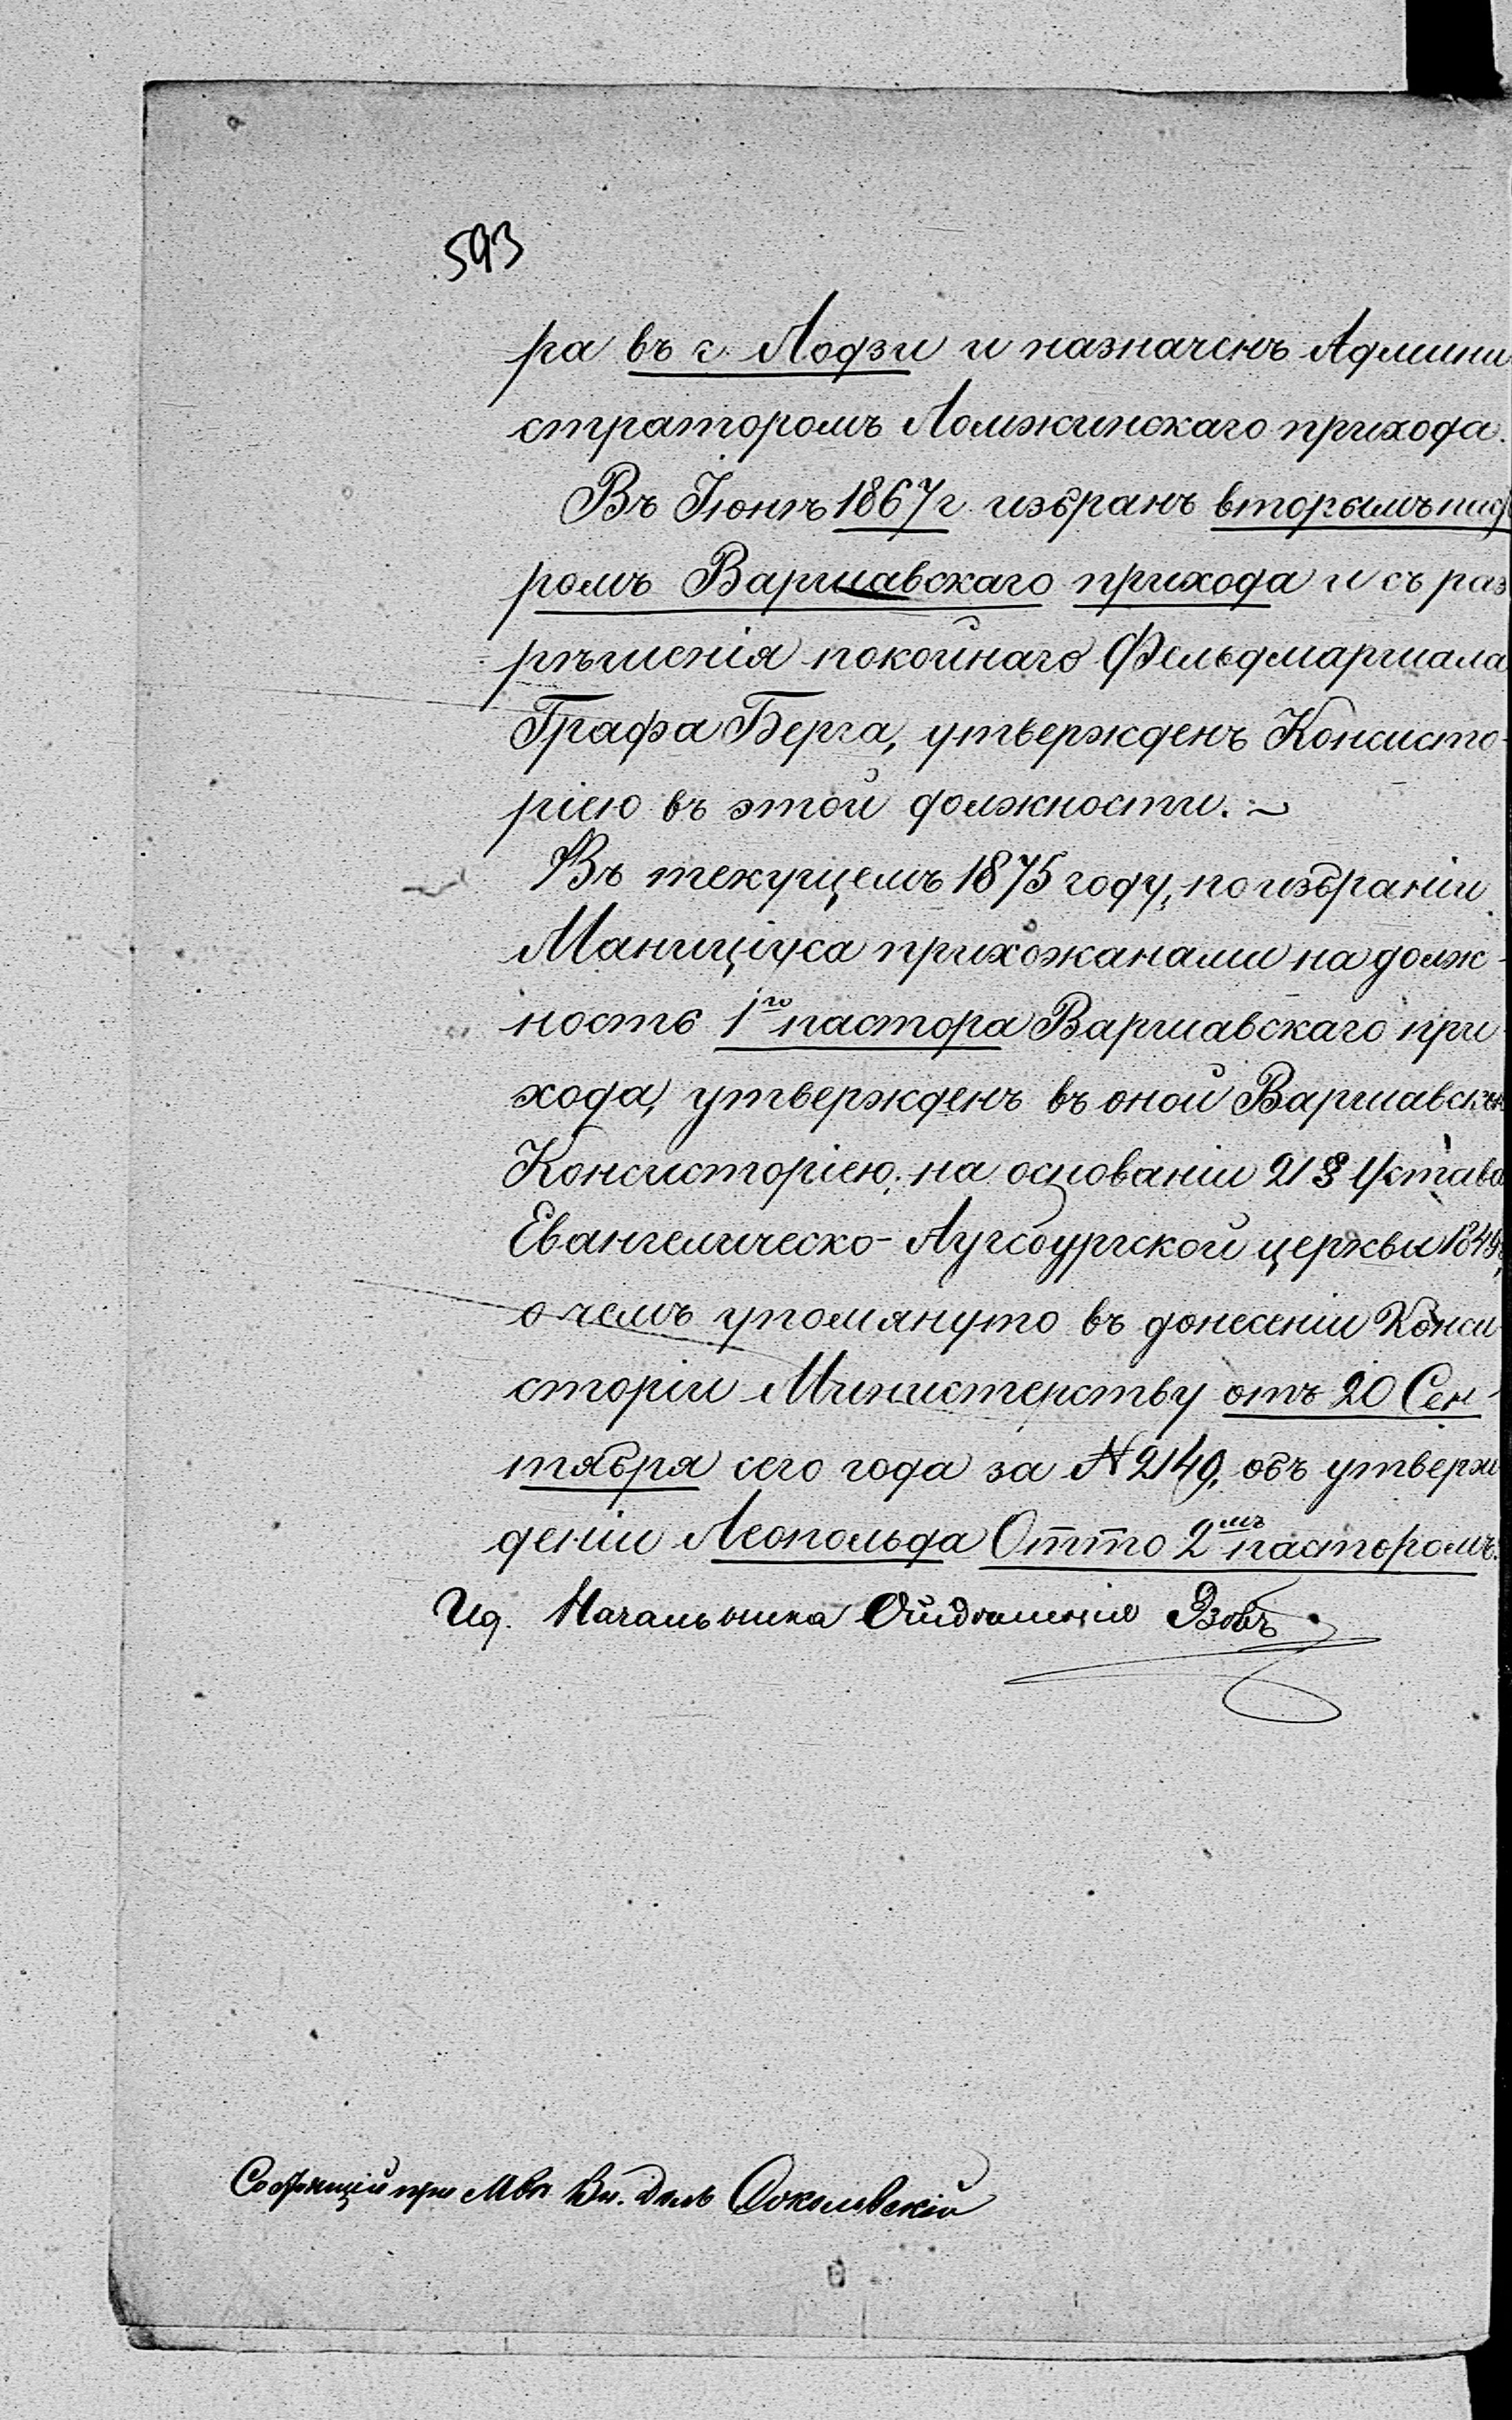 593
ра въ г. Лодзи и назначенъ Админи
страторомъ Ломжинскаго прихода.
Въ Іюнѣ 1867 г. избранъ вторымъ
ромъ Варшавскаго прихода и съ раз
рѣшенія покойнаго Фельдмаршала
Графа Берга, утвержденъ Консисто-
ріею въ этой должности. ~
Въ текущемъ 1875 году, по избраніи
Маниціуса прихожанами на долж-
ность 1го пастора Варшавскаго при
хода, утвержденъ въ оной Варшавск
Консисторіею, на основаніи 21 § Устава
Евангелическо-Аугсбургской церкви 1849,
о чемъ упомянуто въ донесеніи Конси
сторіи Министерству отъ 20 Сен-
тября сего года за № 2149, объ утверж
деніи Леопольда Отто 2мъ пасторомъ.
Ид. Начальника Отдѣленія
Состоящій при Мвѣ Вн. Дѣлъ Соколовскій